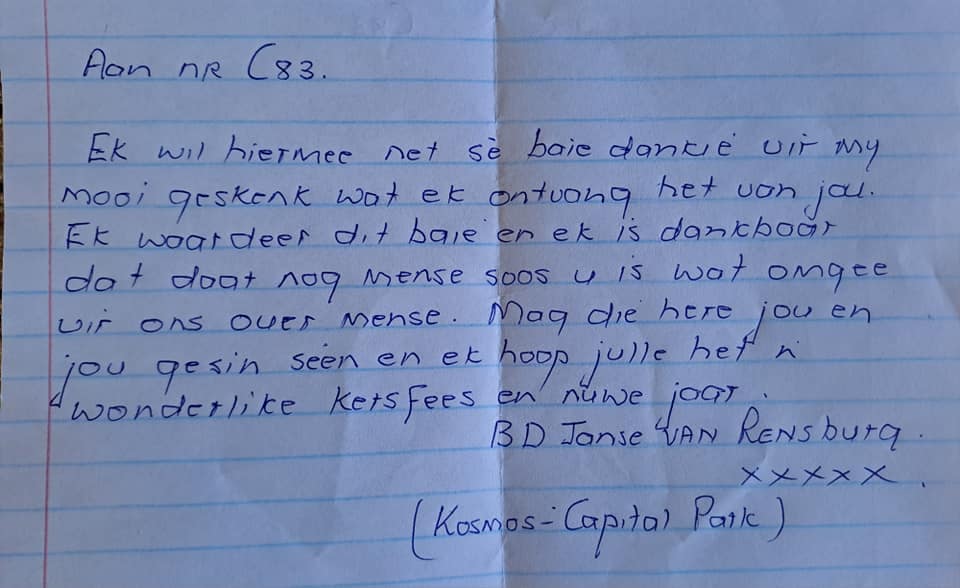 Aan nr C83.
Ek wil hiermee net sè baie dankie vir my
mooi geskenk wat ek ontvang het van jou.
Ek waardeer dit baie en ek is dankbaar
dat daar nog mense soos u is wat omgee
vir ons ouer mense. Mag die here jou en
jou gesin seën en ek hoop julle het 'n
wonderlike kersfees en nuwe jaar.
BD Janse VAN RENSburg.
xxxxx.
(Kosmos - Capital Park)